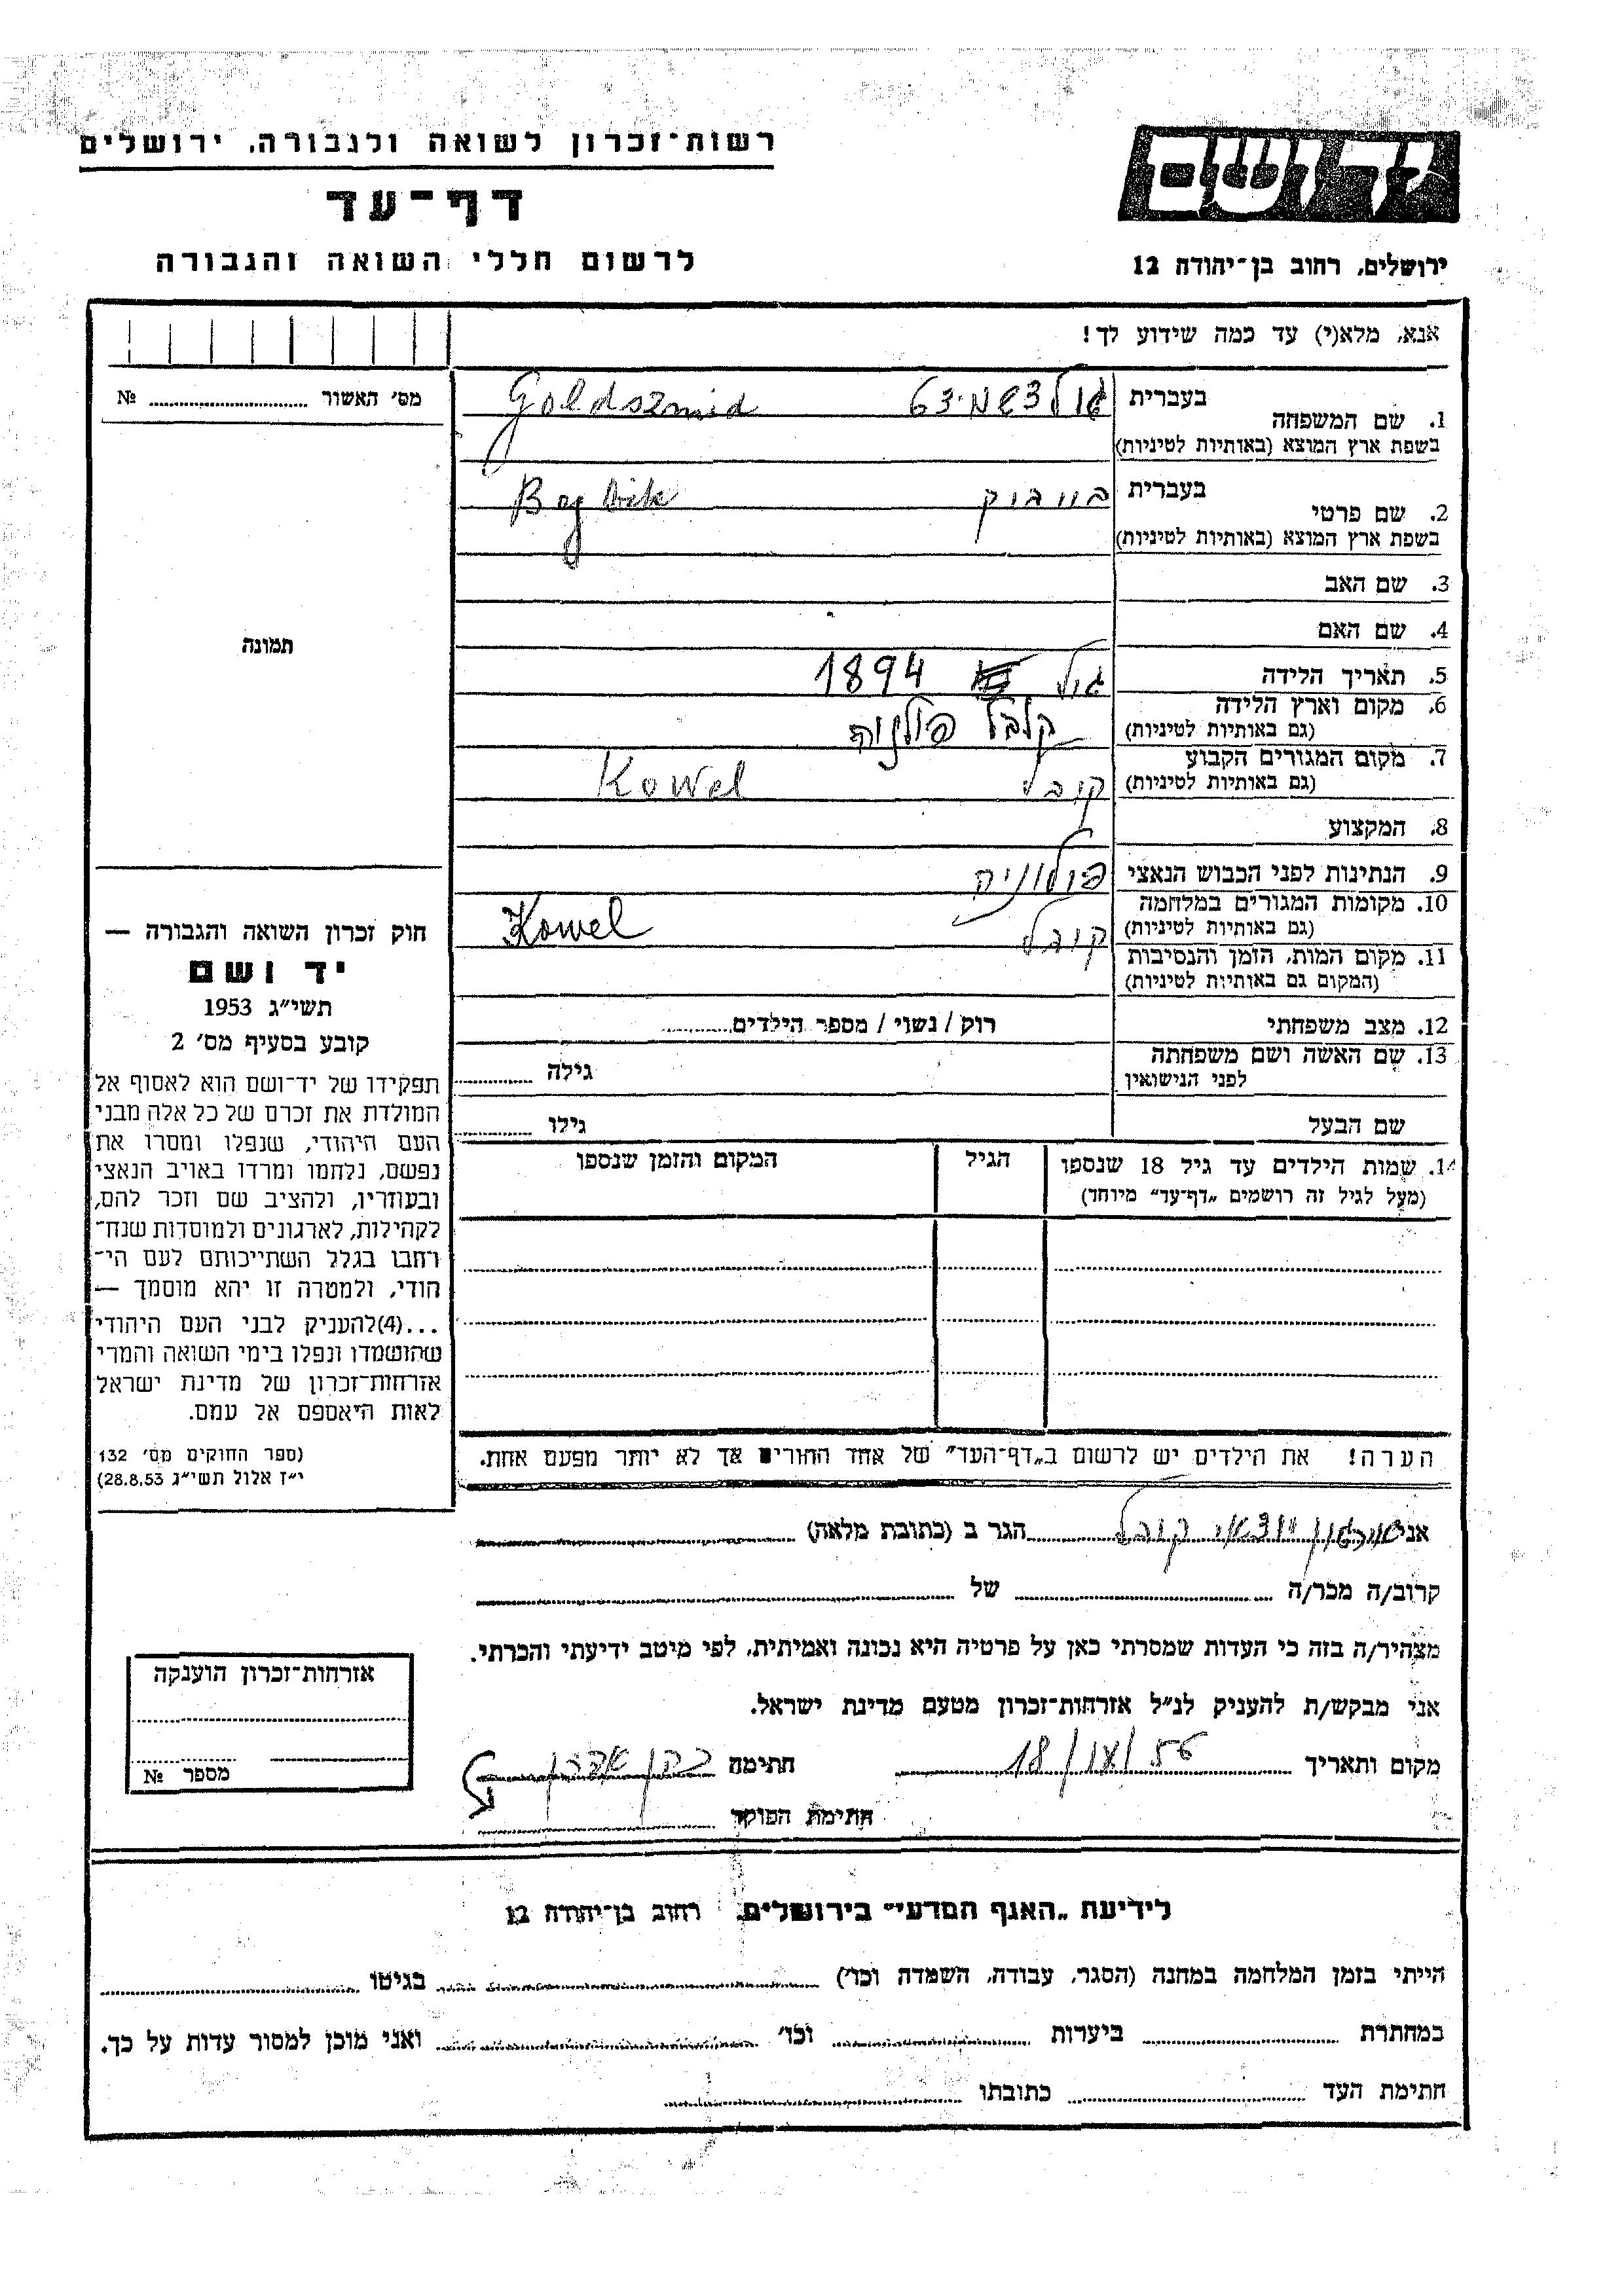 רשות־זכרון לשואה ולגבורה, ירושלים
דף־עד
לרשום חללי השואה והגבורה
יד ושם
ירושלים, רחוב בן־יהודה 12
אנא, מלא(י) עד כמה שידוע לך!
מס' האשור № ....................
תמונה
1. שם המשפחה בעברית Goldszmid
בשפת ארץ המוצא (באותיות לטיניות)
2. שם פרטי בעברית
בשפת ארץ המוצא (באותיות לטיניות)
3. שם האב
4. שם האם
5. תאריך הלידה גיל 1894
6. מקום וארץ הלידה
(גם באותיות לטיניות)
7. מקום המגורים הקבוע קובל Kowel
(גם באותיות לטיניות)
8. המקצוע
9. הנתינות לפני הכבוש הנאצי פולוניה
10. מקומות המגורים במלחמה קובל Kowel
(גם באותיות לטיניות)
11. מקום המות, הזמן והנסיבות
(המקום גם באותיות לטיניות)
12. מצב משפחתי רוק / נשוי / מספר הילדים..........
13. שם האשה ושם משפחתה
לפני הנישואין גילה ..........
שם הבעל גילו ..........
14. שמות הילדים עד גיל 18 שנספו הגיל המקום והזמן שנספו
(מעל לגיל זה רושמים „דף־עד" מיוחד)
הערה! את הילדים יש לרשום ב„דף־העד" של אחד ההורים אך לא יותר מפעם אחת.
חוק זכרון השואה והגבורה —
יד ושם
תשי"ג 1953
קובע בסעיף מס' 2
תפקידו של יד־ושם הוא לאסוף אל
המולדת את זכרם של כל אלה מבני
העם היהודי, שנפלו ומסרו את
נפשם, נלחמו ומרדו באויב הנאצי
ובעוזריו, ולהציב שם וזכר להם,
לקהילות, לארגונים ולמוסדות שנח־
רבו בגלל השתייכותם לעם הי־
הודי, ולמטרה זו יהא מוסמך —
...(4)להעניק לבני העם היהודי
שהושמדו ונפלו בימי השואה והמרי
אזרחות־זכרון של מדינת ישראל
לאות היאספם אל עמם.
(ספר החוקים מס' 132
י"ז אלול תשי"ג 28.8.53)
אני ארגון יוצאי קובל הגר ב (כתובת מלאה) ....................
קרוב/ה מכר/ה .................... של ....................
מצהיר/ה בזה כי העדות שמסרתי כאן על פרטיה היא נכונה ואמיתית, לפי מיטב ידיעתי והכרתי.
אני מבקש/ת להעניק לנ"ל אזרחות־זכרון מטעם מדינת ישראל.
מקום ותאריך חתימה
חתימת הפוקד ....................
אזרחות־זכרון הוענקה
מספר №
לידיעת „האגף המדעי" בירושלים, רחוב בן־יהודה 12
הייתי בזמן המלחמה במחנה (הסגר, עבודה, השמדה וכו') .................... בגיטו ....................
במחתרת .................... ביערות .................... וכו' .................... ואני מוכן למסור עדות על כך.
חתימת העד .................... כתובתו ....................